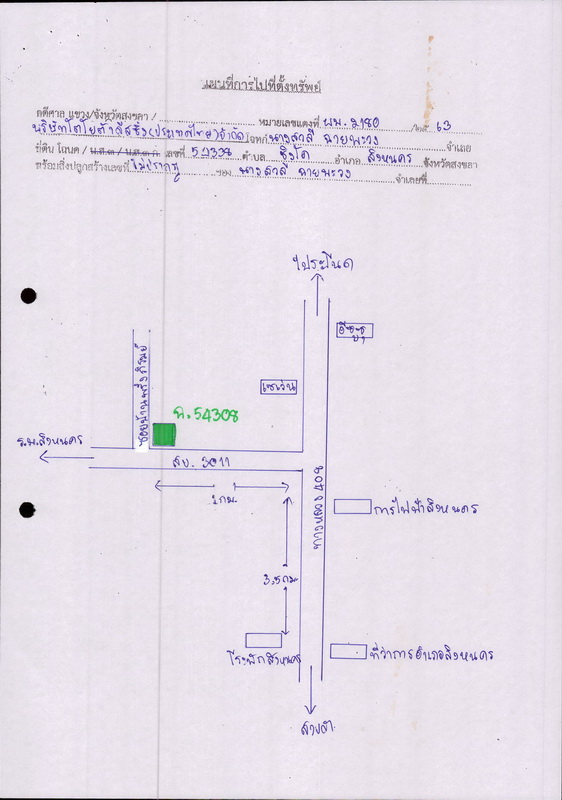 แผนที่การไปที่ตั้งทรัพย์
คดีศาล แขวง/จังหวัดสงขลา / หมายเลขแดงที่ ผบ. 2180 /๒๕ 63
บริษัทโตโยต้าลีสซิ่ง(ประเทศไทย)จำกัด โจทก์ นางสาลี ฉายพะวง จำเลย
ที่ดิน โฉนด / น.ส.๓ / น.ส.๓ ก. เลขที่ 54308 ตำบล ชิงโค อำเภอ สิงหนคร จังหวัดสงขลา
พร้อมสิ่งปลูกสร้างเลขที่ ไม่ปรากฏ ของ นางสาลี ฉายพะวง จำเลยที่
ไประโนด
อีซูซุ
เซเว่น
ซอยบ้านพรุ
ฉ.54308
ร.พ.สิงหนคร
สข. 3011
1 กม.
ทางหลวง 408
การไฟฟ้าสิงหนคร
3.5 กม.
โรงพักสิงหนคร
ที่ว่าการอำเภอสิงหนคร
สงขลา